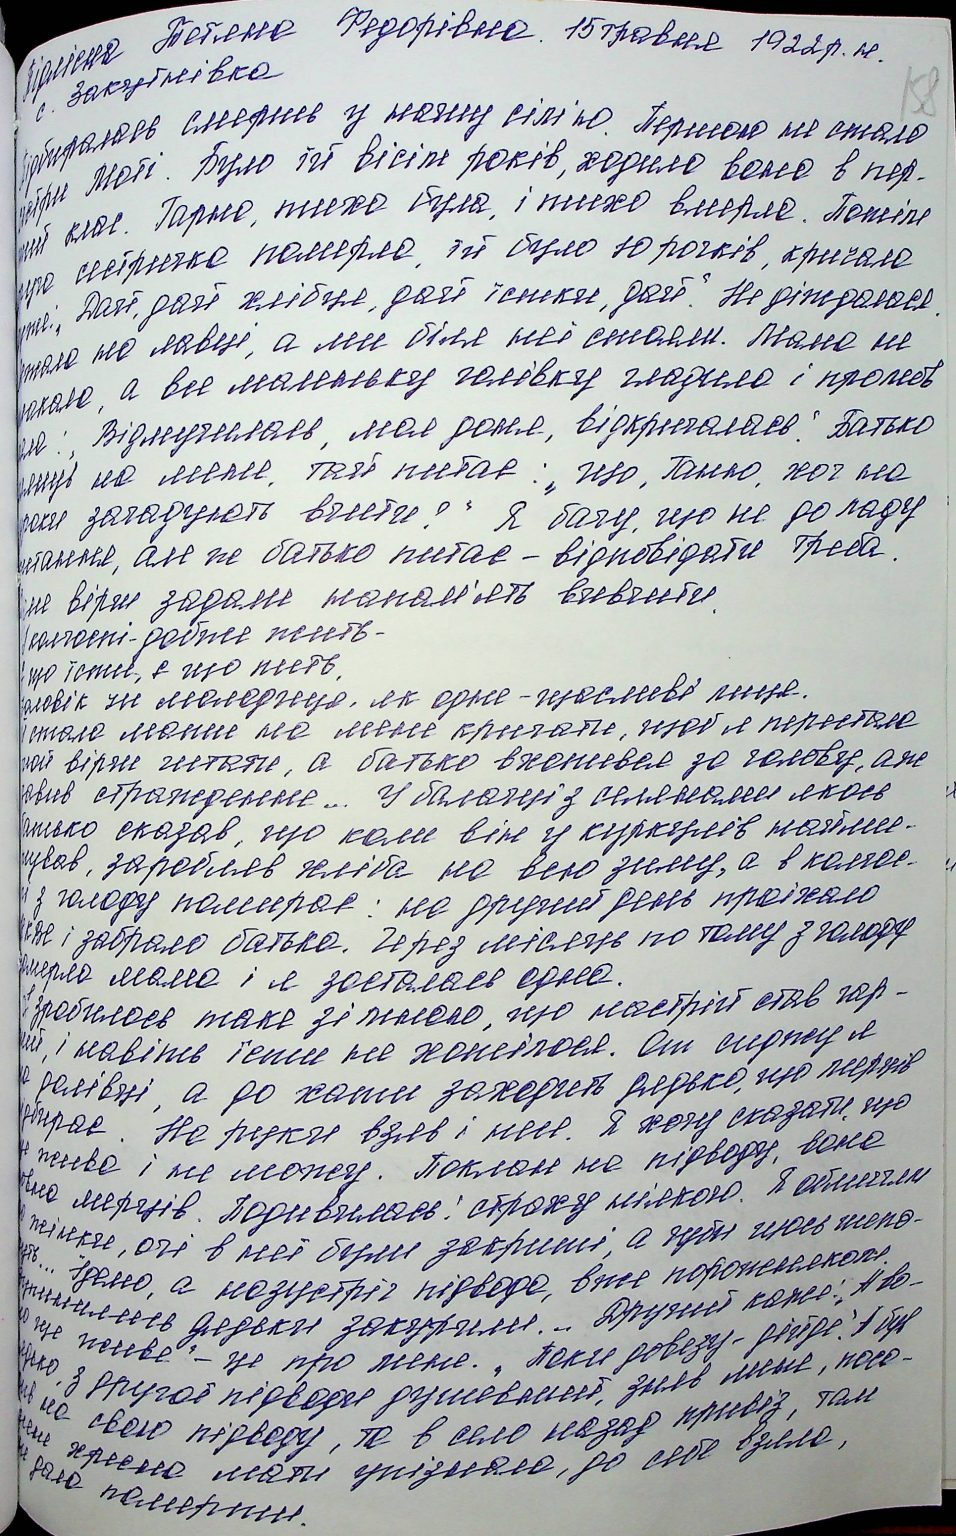 Тетяна Федорівна. 15 травня 1922 р. н.
с. Закутнівка
158
смерть у нашу сім'ю. Першою не стало
Моті. Було їй вісім років, ходила вона в пер-
клас. Гарна, тиха була, і тихо вмерла. Потім
сестричка померла, їй було 10 рочків, кричала
„Дай, дай хлібця, дай їстки, дай". Не діждалася.
на лавці, а ми біля неї стояли. Мама не
а все маленьку голівку гладила і промов
„Відмучилась, моя доня, відкричалась". Батько
на мене, тай питає: „що, Таню, хоч на
загадують вчити?" Я бачу, що не до ладу
але ж батько питає – відповідати треба.
вірш задали напам'ять вивчити.
колгоспі - добре жить -
що їсти, є що пить,
чи молодиця, як одне - щасливі лиця.
стала мати на мене кричати, щоб я перестала
вірш читати, а батько вхопився за голову, аж
страждення... У балачці з селянами якось
батько сказав, що коли він у куркулів найми-
заробляв хліба на всю зиму, а в колгос-
з голоду помирає: на другий день приїхало
і забрало батька. Через місяць по тому з голоду
мама і я зосталась одна.
зробилось таке зі мною, що настрій став гар-
і навіть їсти не хотілося. От сиджу я
долівці, а до хати заходить дядько, що мерців
На руки взяв і несе. Я хочу сказати, що
жива і не можу. Поклав на підводу, вона
мерців. Подивилась: страху ніякого. Я обличчям
жінки, очі в неї були закриті, а губи щось шепо-
Їдемо, а назустріч підвода, вже порожняком.
дядьки закурили... Другий каже: „А во-
ще живе" – це про мене. „Поки довезу - дійде". А був
з другої підводи душевний, зняв мене, поло-
на свою підводу, та в село назад привіз, там
хресна мати упізнала, до себе взяла,
дала померти.